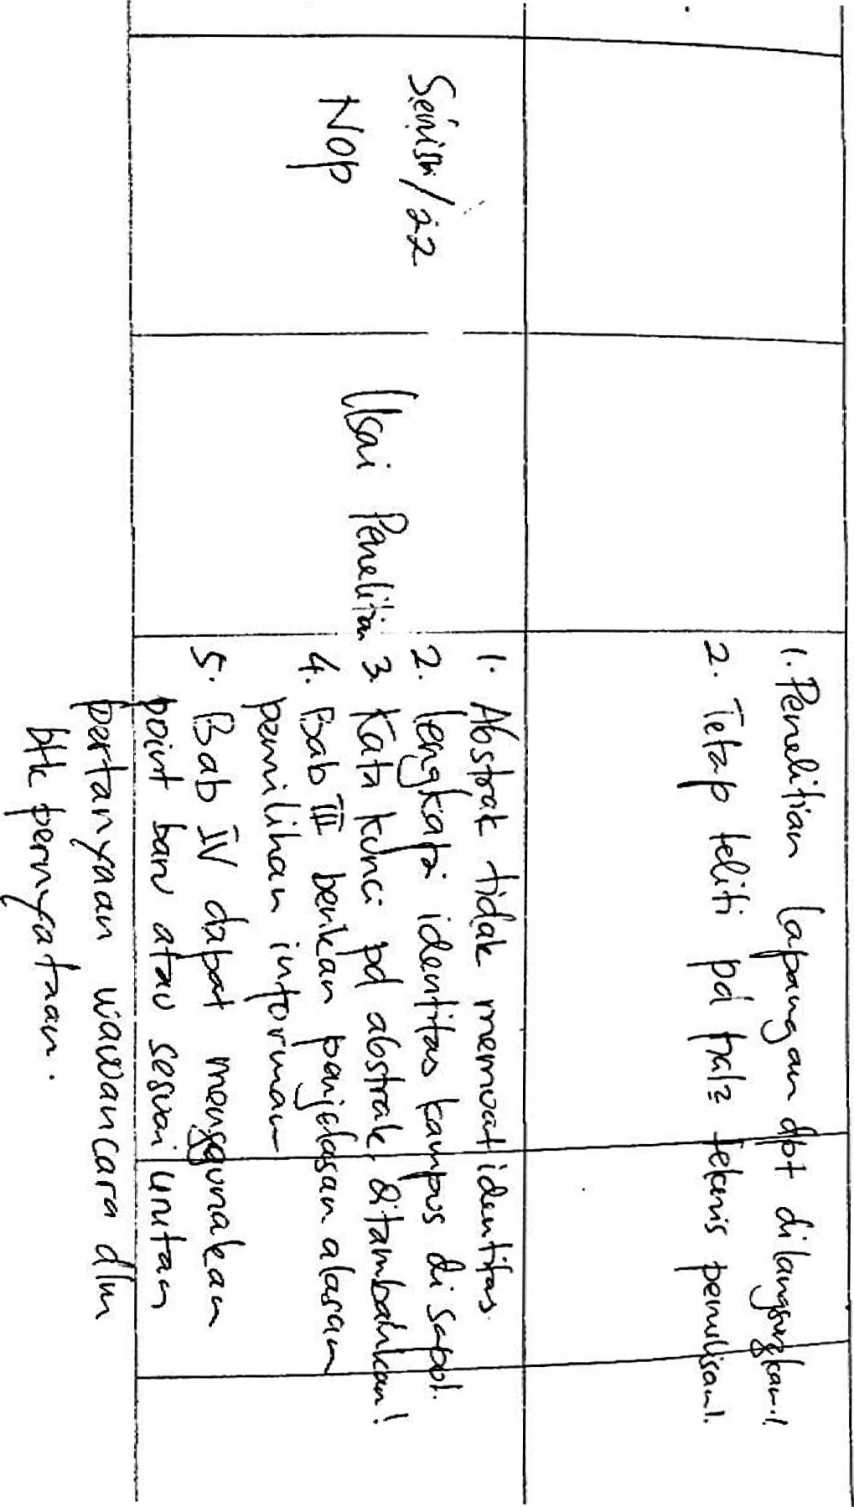 1. Penelitian lapangan dpt dilangsungkan!
2. Tetap teliti pd hal2 teknis penulisan!.
Senin/22
Nop
Usai Penelitian
1. Abstrak tidak memuat identitas.
2. lengkapi identitas kampus di
3. Kata kunci pd abstrak ditambahkan!
4. Bab III berikan penjelasan alasan
pemilihan informan
5. Bab IV dapat menggunakan
point baru atau sesuai urutan
pertanyaan wawancara dlm
btk pernyataan.